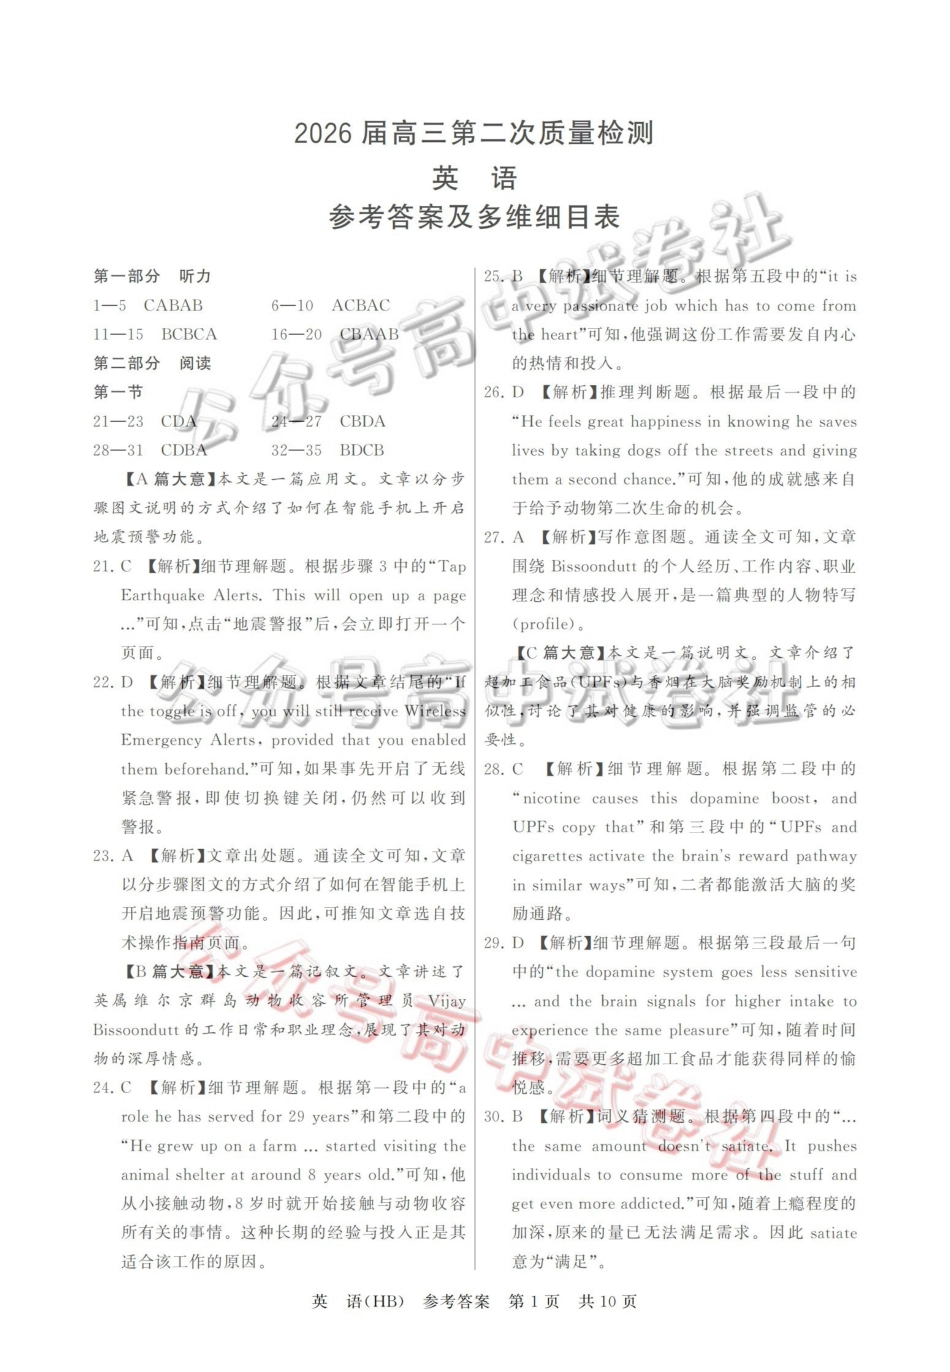 2026 届高三第二次质量检测
英 语
参考答案及多维细目表
第一部分 听力
1—5 CABAB 6—10 ACBAC
11—15 BCBCA 16—20 CBAAB
第二部分 阅读
第一节
21—23 CDA 24—27 CBDA
28—31 CDBA 32—35 BDCB
【A 篇大意】本文是一篇应用文。文章以分步
骤图文说明的方式介绍了如何在智能手机上开启
地震预警功能。
21. C 【解析】细节理解题。根据步骤 3 中的“Tap
Earthquake Alerts. This will open up a page
…”可知,点击“地震警报”后,会立即打开一个
页面。
22. D 【解析】细节理解题。根据文章结尾的“If
the toggle is off, you will still receive Wireless
Emergency Alerts, provided that you enabled
them beforehand.”可知,如果事先开启了无线
紧急警报,即使切换键关闭,仍然可以收到
警报。
23. A 【解析】文章出处题。通读全文可知,文章
以分步骤图文的方式介绍了如何在智能手机上
开启地震预警功能。因此,可推知文章选自技
术操作指南页面。
【B 篇大意】本文是一篇记叙文。文章讲述了
英属维尔京群岛动物收容所管理员 Vijay
Bissoondutt 的工作日常和职业理念,展现了其对动
物的深厚情感。
24. C 【解析】细节理解题。根据第一段中的“a
role he has served for 29 years”和第二段中的
“He grew up on a farm … started visiting the
animal shelter at around 8 years old.”可知,他
从小接触动物,8 岁时就开始接触与动物收容
所有关的事情。这种长期的经验与投入正是其
适合该工作的原因。
25. B 【解析】细节理解题。根据第五段中的“it is
a very passionate job which has to come from
the heart”可知,他强调这份工作需要发自内心
的热情和投入。
26. D 【解析】推理判断题。根据最后一段中的
“He feels great happiness in knowing he saves
lives by taking dogs off the streets and giving
them a second chance.”可知,他的成就感来自
于给予动物第二次生命的机会。
27. A 【解析】写作意图题。通读全文可知,文章
围绕 Bissoondutt 的个人经历、工作内容、职业
理念和情感投入展开,是一篇典型的人物特写
(profile)。
【C 篇大意】本文是一篇说明文。文章介绍了
超加工食品(UPFs)与香烟在大脑奖励机制上的相
似性,讨论了其对健康的影响,并强调监管的必
要性。
28. C 【解析】细节理解题。根据第二段中的
“nicotine causes this dopamine boost, and
UPFs copy that”和第三段中的“UPFs and
cigarettes activate the brain's reward pathway
in similar ways”可知,二者都能激活大脑的奖
励通路。
29. D 【解析】细节理解题。根据第三段最后一句
中的“the dopamine system goes less sensitive
… and the brain signals for higher intake to
experience the same pleasure”可知,随着时间
推移,需要更多超加工食品才能获得同样的愉
悦感。
30. B 【解析】词义猜测题。根据第四段中的“…
the same amount doesn't satiate. It pushes
individuals to consume more of the stuff and
get even more addicted.”可知,随着上瘾程度的
加深,原来的量已无法满足需求。因此 satiate
意为“满足”。
英 语(HB) 参考答案 第 1 页 共 10 页
公众号高中试卷社
公众号高中试卷社
公众号高中试卷社